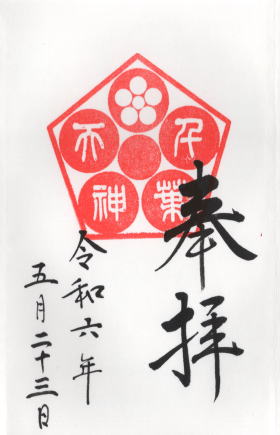 奉拝
千葉
天神
令和六年
五月二十三日